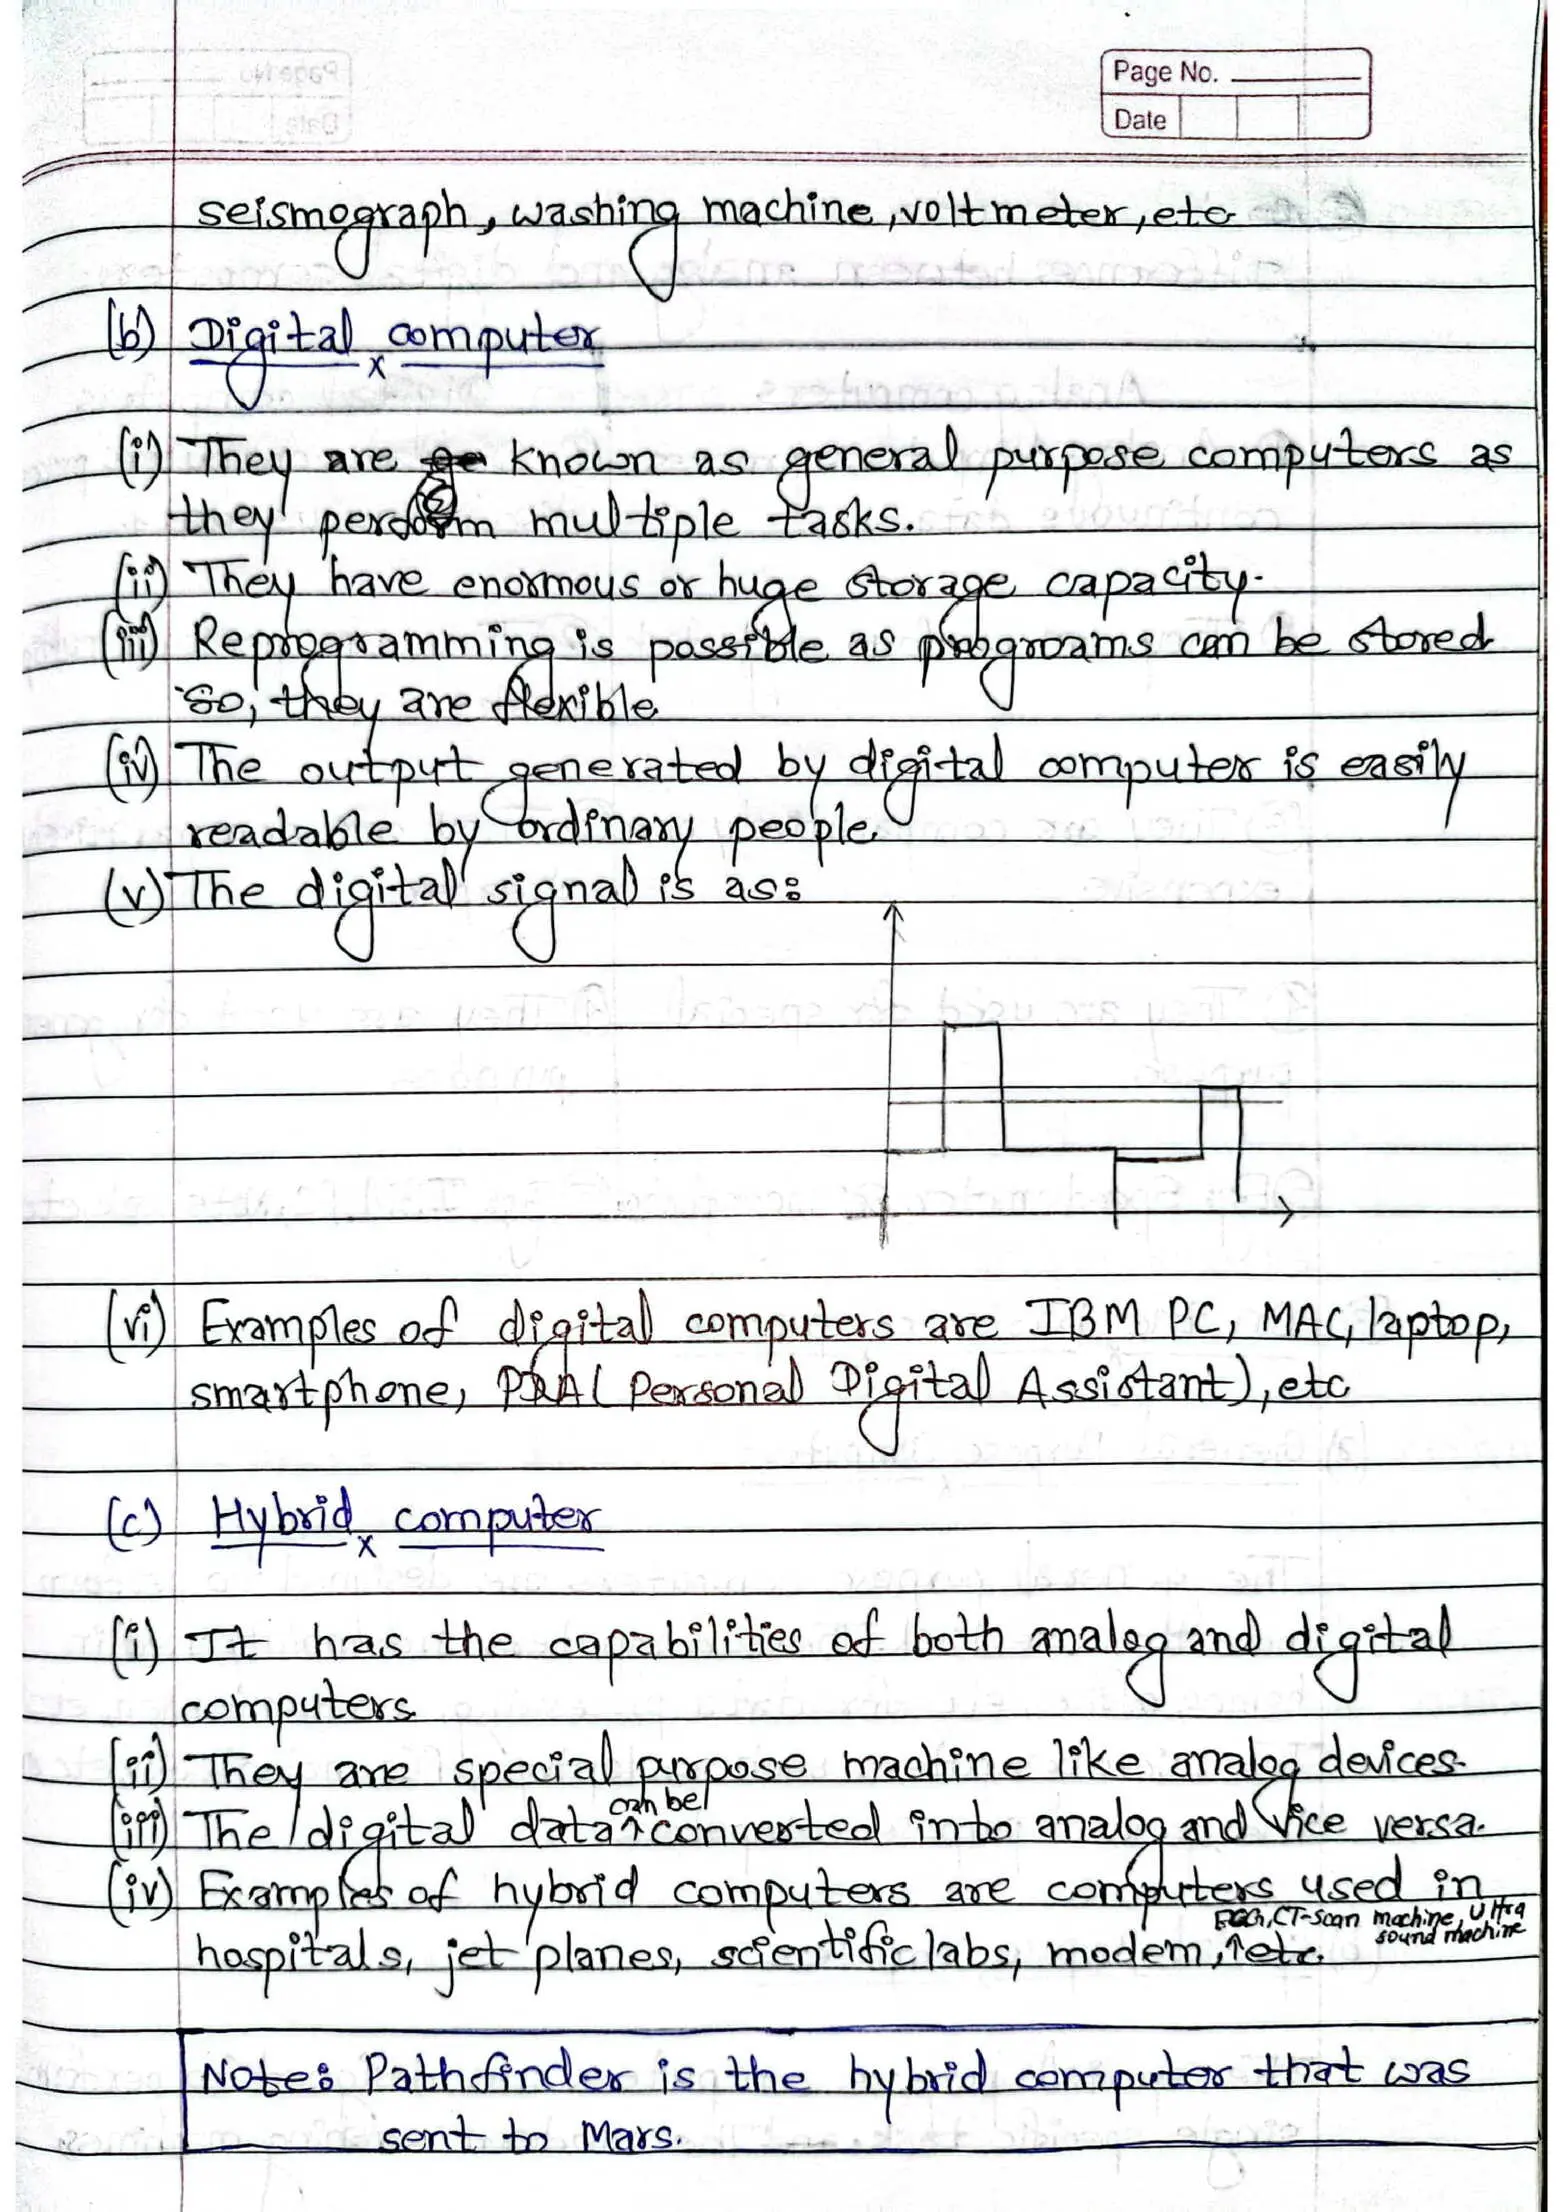 Page No.
Date
seismograph, washing machine, voltmeter, etc
(b) Digital computer
(i) They are known as general purpose computers as
they perform multiple tasks.
(ii) They have enormous or huge storage capacity.
(iii) Reprogramming is possible as programs can be stored
so, they are flexible
(iv) The output generated by digital computer is easily
readable by ordinary people.
(v) The digital signal is as:
(vi) Examples of digital computers are IBM PC, MAC, laptop,
smartphone, PDA( Personal Digital Assistant), etc
(c) Hybrid computer
(i) It has the capabilities of both analog and digital
computers.
(ii) They are special purpose machine like analog devices.
can be
(iii) The digital data ↑ converted into analog and vice versa.
(iv) Examples of hybrid computers are computers used in
ECG, CT-Scan machine, Ultra
sound machine
hospitals, jet planes, scientific labs, modem, ↑ etc.
Note: Pathfinder is the hybrid computer that was
sent to Mars.